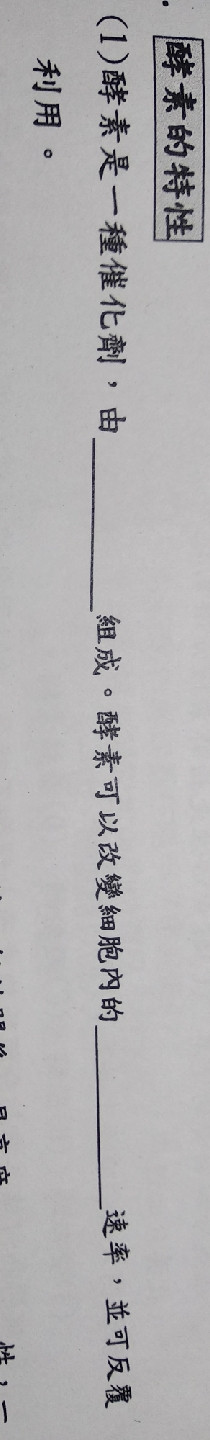 酵素的特性
(1)酵素是一種催化劑，由＿＿＿＿組成。酵素可以改變細胞內的＿＿＿＿速率，並可反覆
利用。
性，一